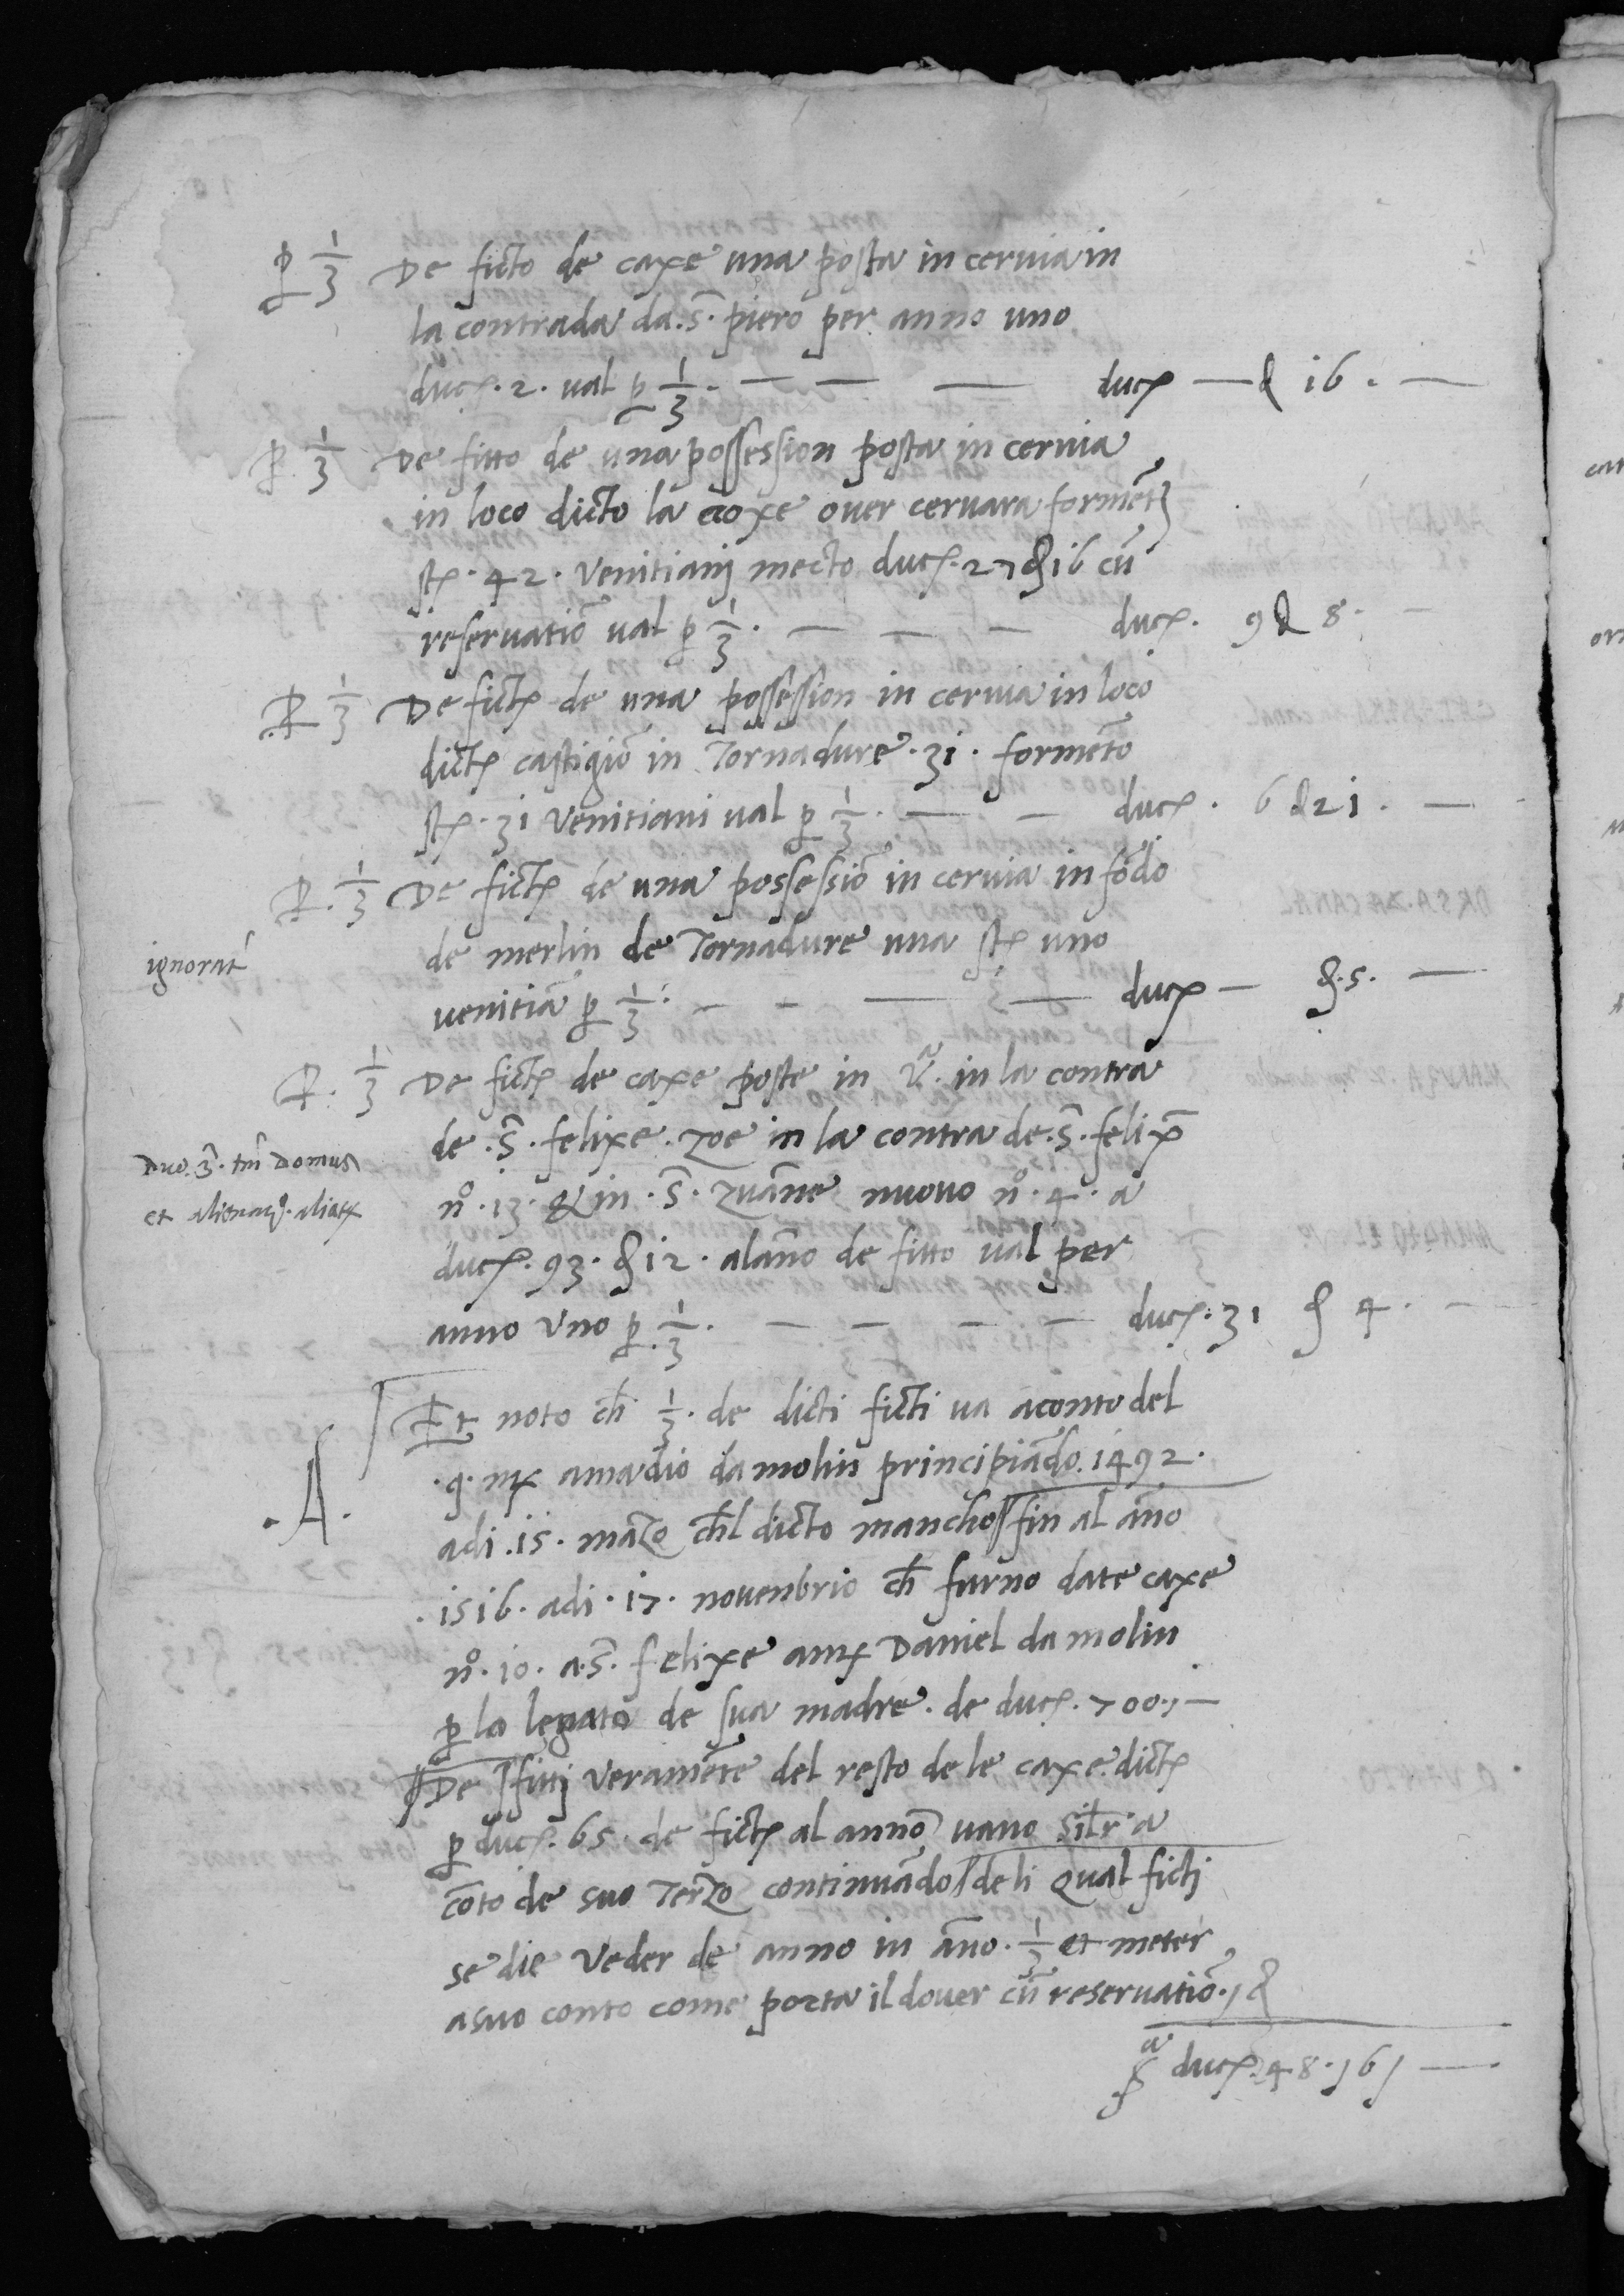 ꝑ 1/3 De ficto de caxe una posta in cervia in
la contrada da .S. piero per anno uno
ducꝭ. 2. val ꝑ 1/3. — — — ducꝭ — ꝺ 16. —
ꝑ. 1/3 De fitto de una possession posta in cervia
in loco dicto la croxe over cervara forment̄
stꝭ. 42. Venitianj mecto ducꝭ. 27 ꝺ 16 cū
reservatiō val ꝑ 1/3. — — — ducꝭ. 9 ꝺ 8. —
.ꝑ 1/3 De fictꝭ de una possession in cervia in loco
dictꝭ castigiō in Tornadure. 31. formēto
stꝭ. 31 Venitiani val ꝑ 1/3. — — ducꝭ. 6 ꝺ 21. —
ꝑ. 1/3 De fictꝭ de una possessiō in cervia in fōdo
ignorat̄
de merlin de Tornadure una stꝭ uno
venitiā ꝑ 1/3. — — — — ducꝭ — ꝺ. 5. —
ꝑ. 1/3 De fictꝭ de caxe poste in in la contra
de .S̄. felixe. zoe in la contra de .S̄. felix̄
Duo. 3. tm̄ Domus
et
nº. 13. & in .S̄. zuāne nuovo nº. 4. a
ducꝭ. 93. ꝺ 12. alāno de fitto val per
anno uno ꝑ. 1/3. — — — — ducꝭ. 31 ꝺ 4. —
Et noto ch̄ 1/3. de dicti ficti va aconto del
.A.
.q. mꝭ amadio da molin principiādo. 1492.
adi .15. mazo ch̄l dicto mancho // fin al āno
.1516. adi. 17. novenbrio ch̄ furno date caxe
nº. 10. a .S̄. felixe amꝭ Daniel da molin
ꝑ lo legato de sua madre. de ducꝭ. 700., —
// De // fittj veramēte del resto de le caxe dictꝭ
ꝑ ducꝭ. 65. de fictꝭ al annō vano sil̄r a
cōto de suo Terzo continuādo // de li qual fictj
se die veder de anno in āno. 1/3 et meter
a suo conto come porta il dover cū reservatiō.,
ducꝭ. 48. / 6 / —